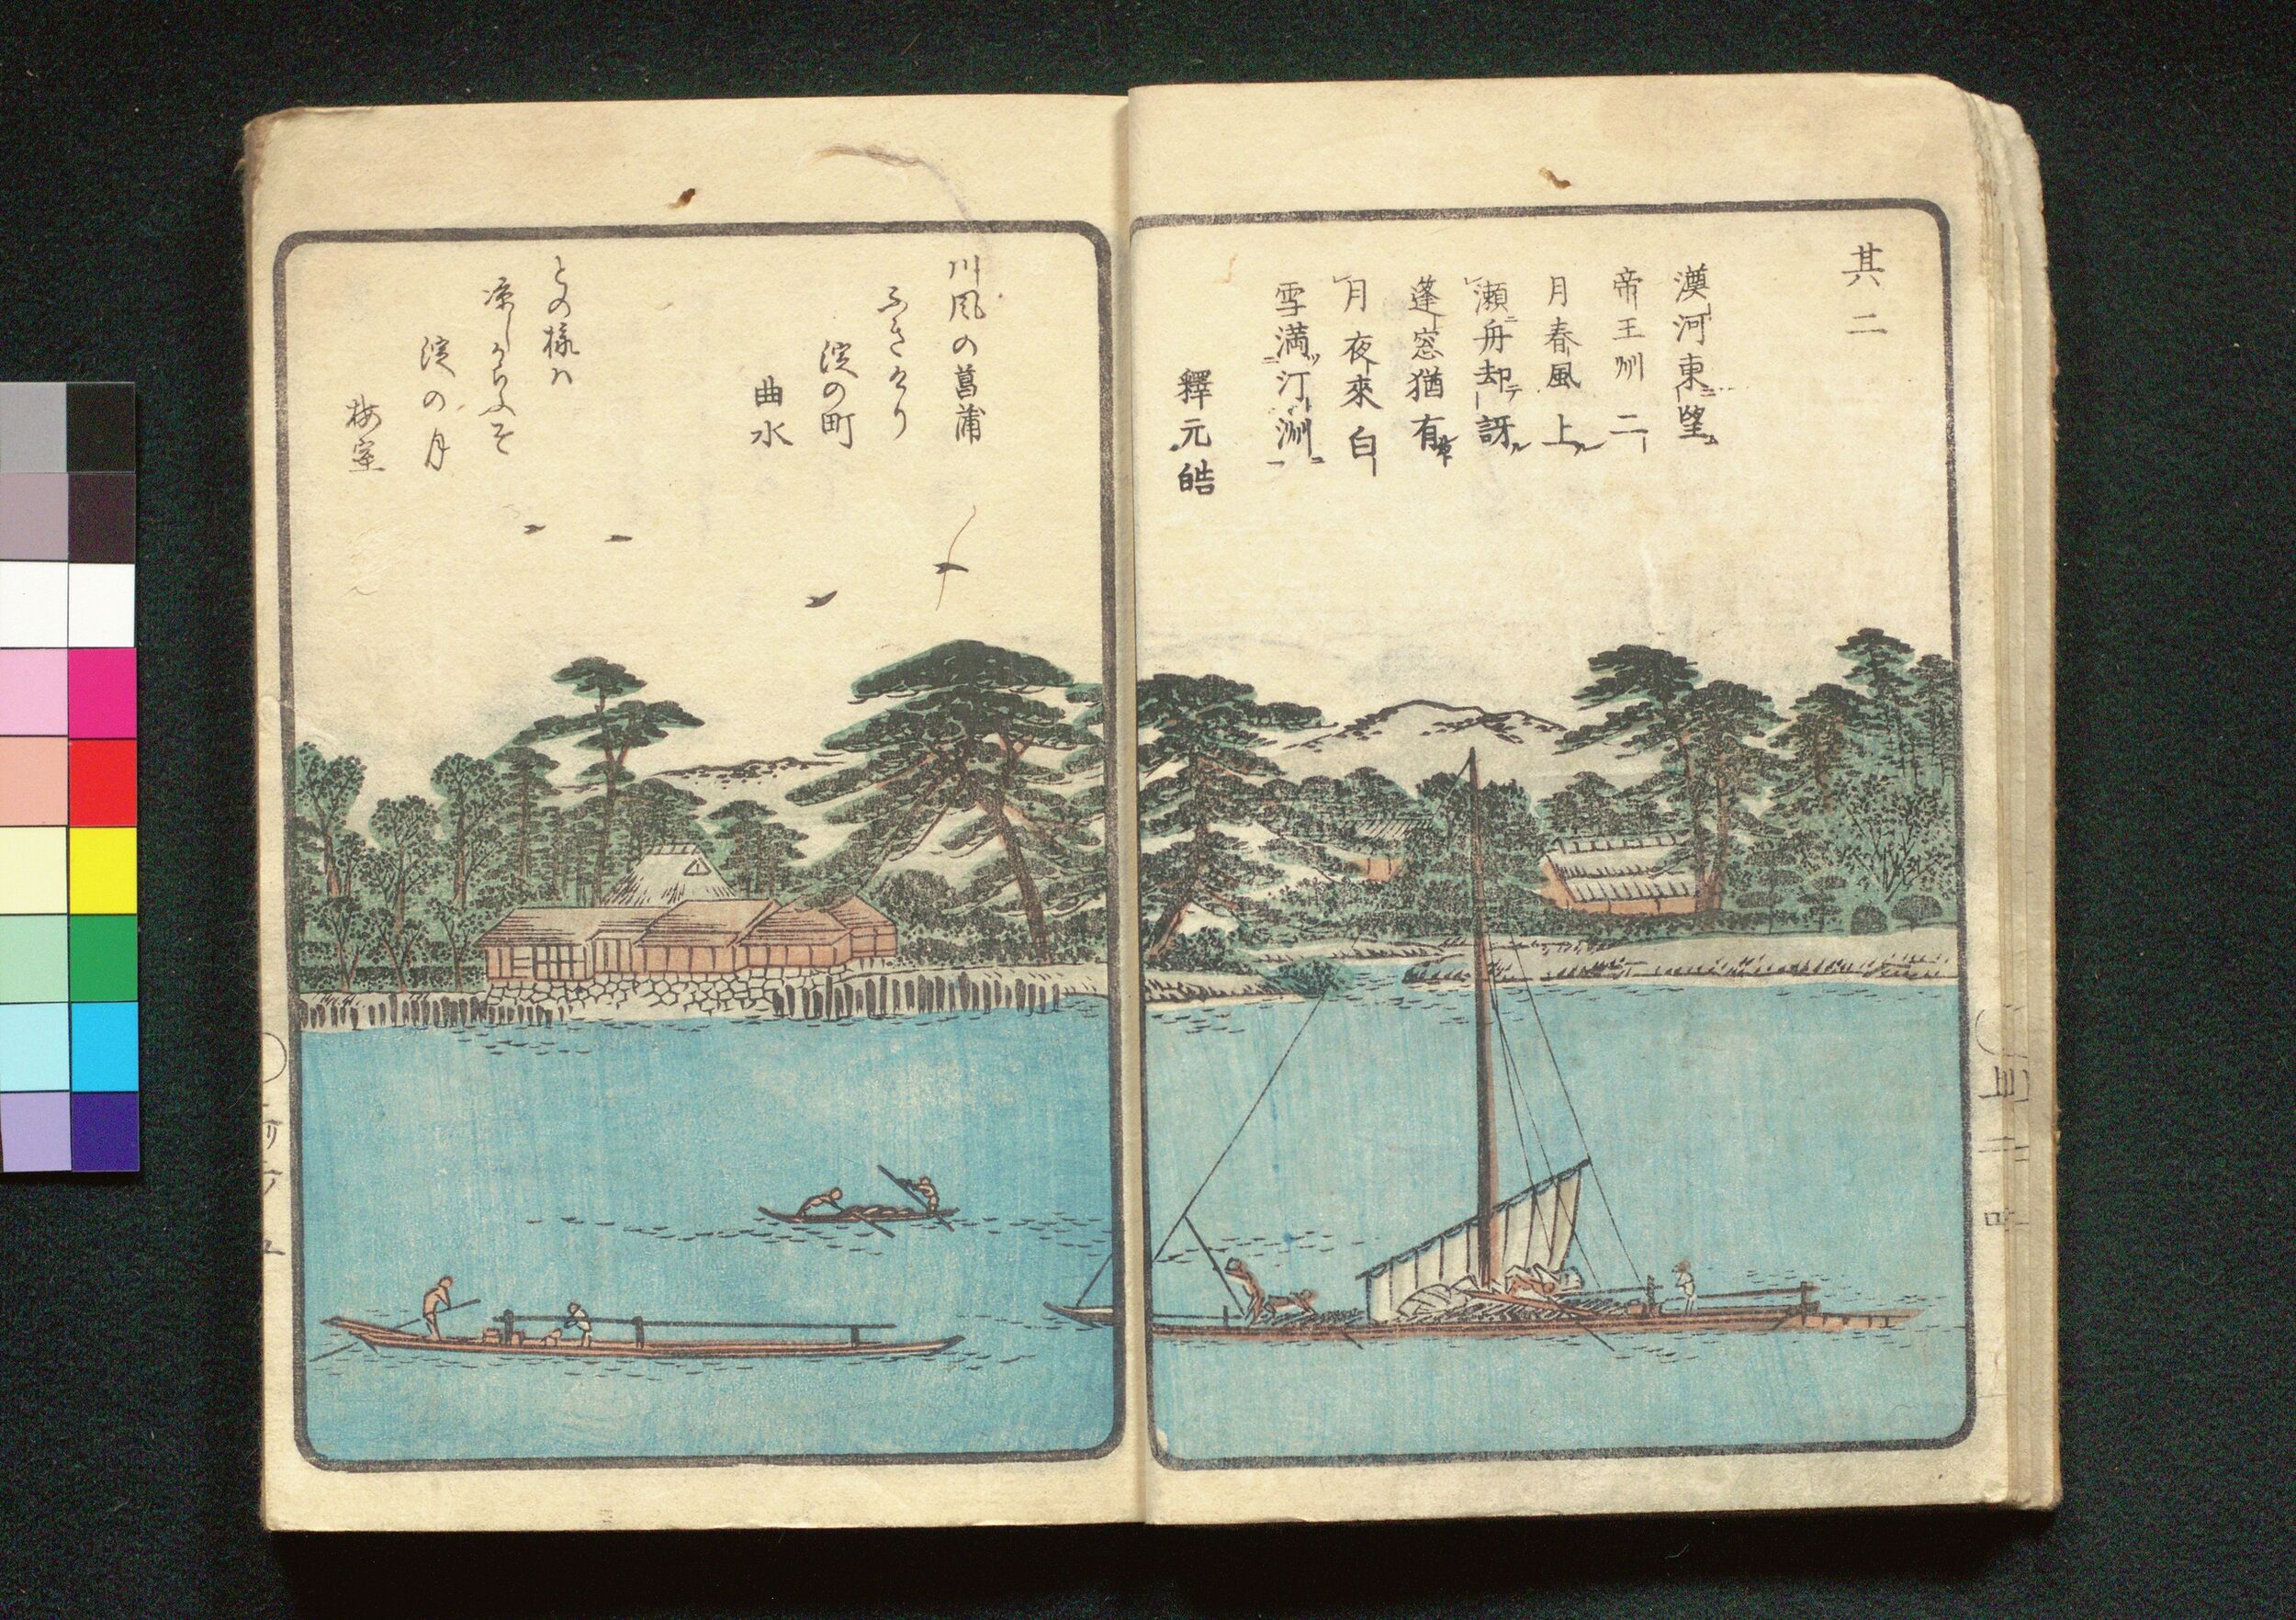 其二
漠河東望
帝王州二
月春風上
瀬舟却訝
蓬窓猶有
月夜來白
雪満汀洲
釋元皓
川風の菖蒲
ふきけり
淀の町
曲水
との様は
涼しからふぞ
淀の月
梅室